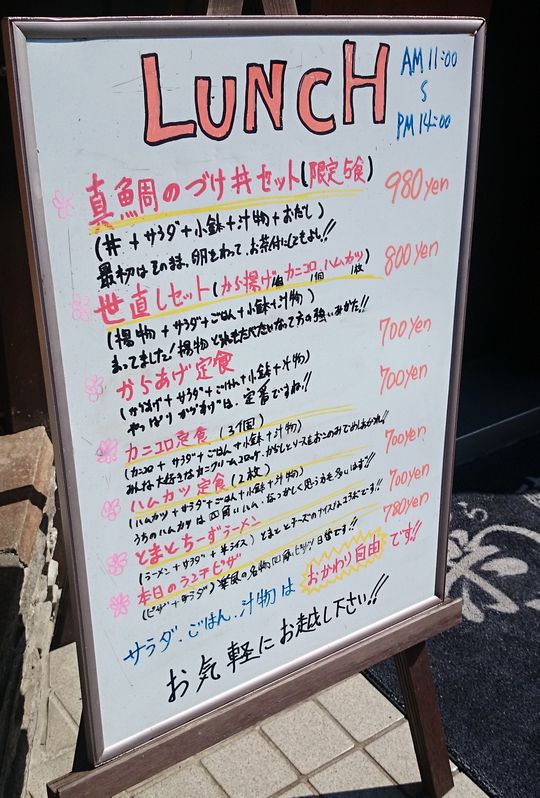 LUNCH
AM 11:00
〜
PM 14:00
真鯛のづけ丼セット(限定5食) 980yen
(丼 + サラダ + 小鉢 + 汁物 + おだし)
最初はそのまま、卵をわって、お茶付にしてもよし!!
世直しセット(から揚げ1個 カニコロ1個 ハムカツ1枚) 800yen
(揚物 + サラダ + ごはん + 小鉢 + 汁物)
まってました!揚物
からあげ定食 700yen
(からあげ + サラダ + ごはん + 小鉢 + 汁物)
やっぱり からあげは、定番ですね!!
カニコロ定食(3個) 700yen
(カニコロ + サラダ + ごはん + 小鉢 + 汁物)
みんな大好きなカニクリームコロッケ、からしとソースもおこのみでめしあがれ!!
ハムカツ定食(2枚) 700yen
(ハムカツ + サラダ + ごはん + 小鉢 + 汁物)
うちのハムカツは四角いハム、なつかしく思う方も多いはず!!
とまとちーずラーメン 700yen
(ラーメン + サラダ + 半ライス) とまととチーズのナイスな
本日のうこ子ピザ 780yen
(ピザ + サラダ)
サラダ、ごはん、汁物は おかわり自由 です!!
お気軽にお越し下さい!!